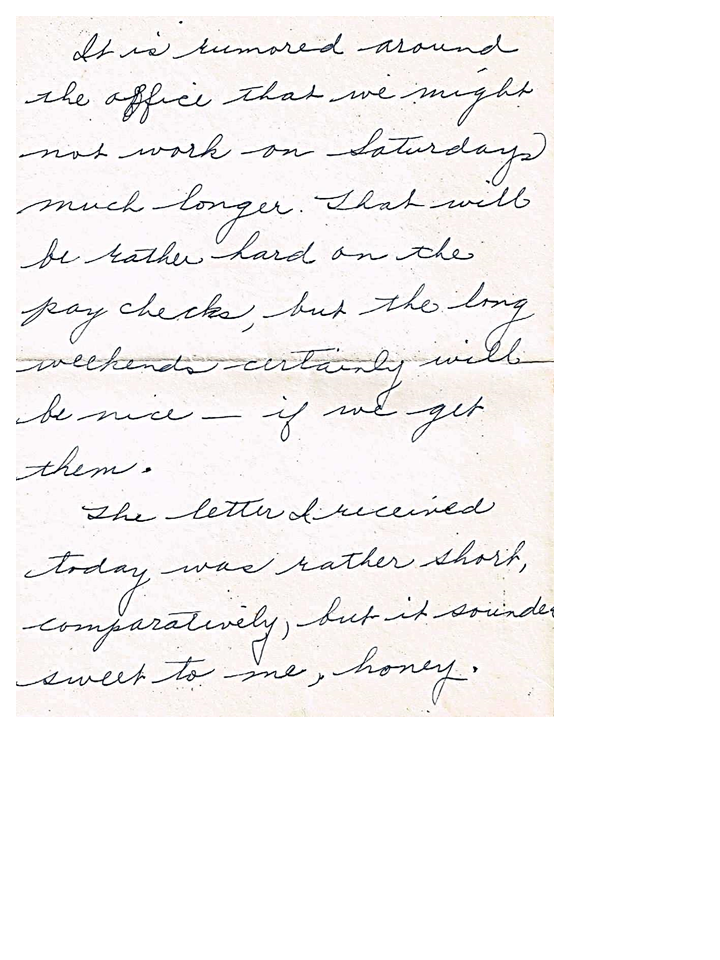 It is rumored around
the office that we might
not work on Saturdays
much longer. That will
be rather hard on the
pay checks, but the long
weekends certainly will
be nice — if we get
them.
The letter I received
today was rather short,
comparatively, but it sounded
sweet to me, honey.